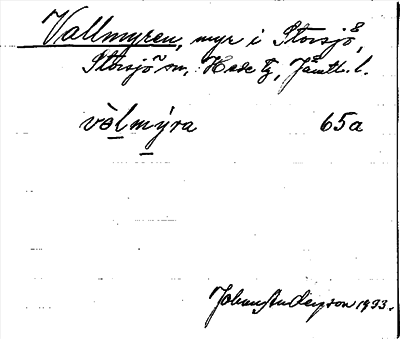 Vallmyren, myr i Storsjö,
Storsjö sn, Hede tg, Jämtl. l.
vàlmýra 65a
Johan Anderson 1933.